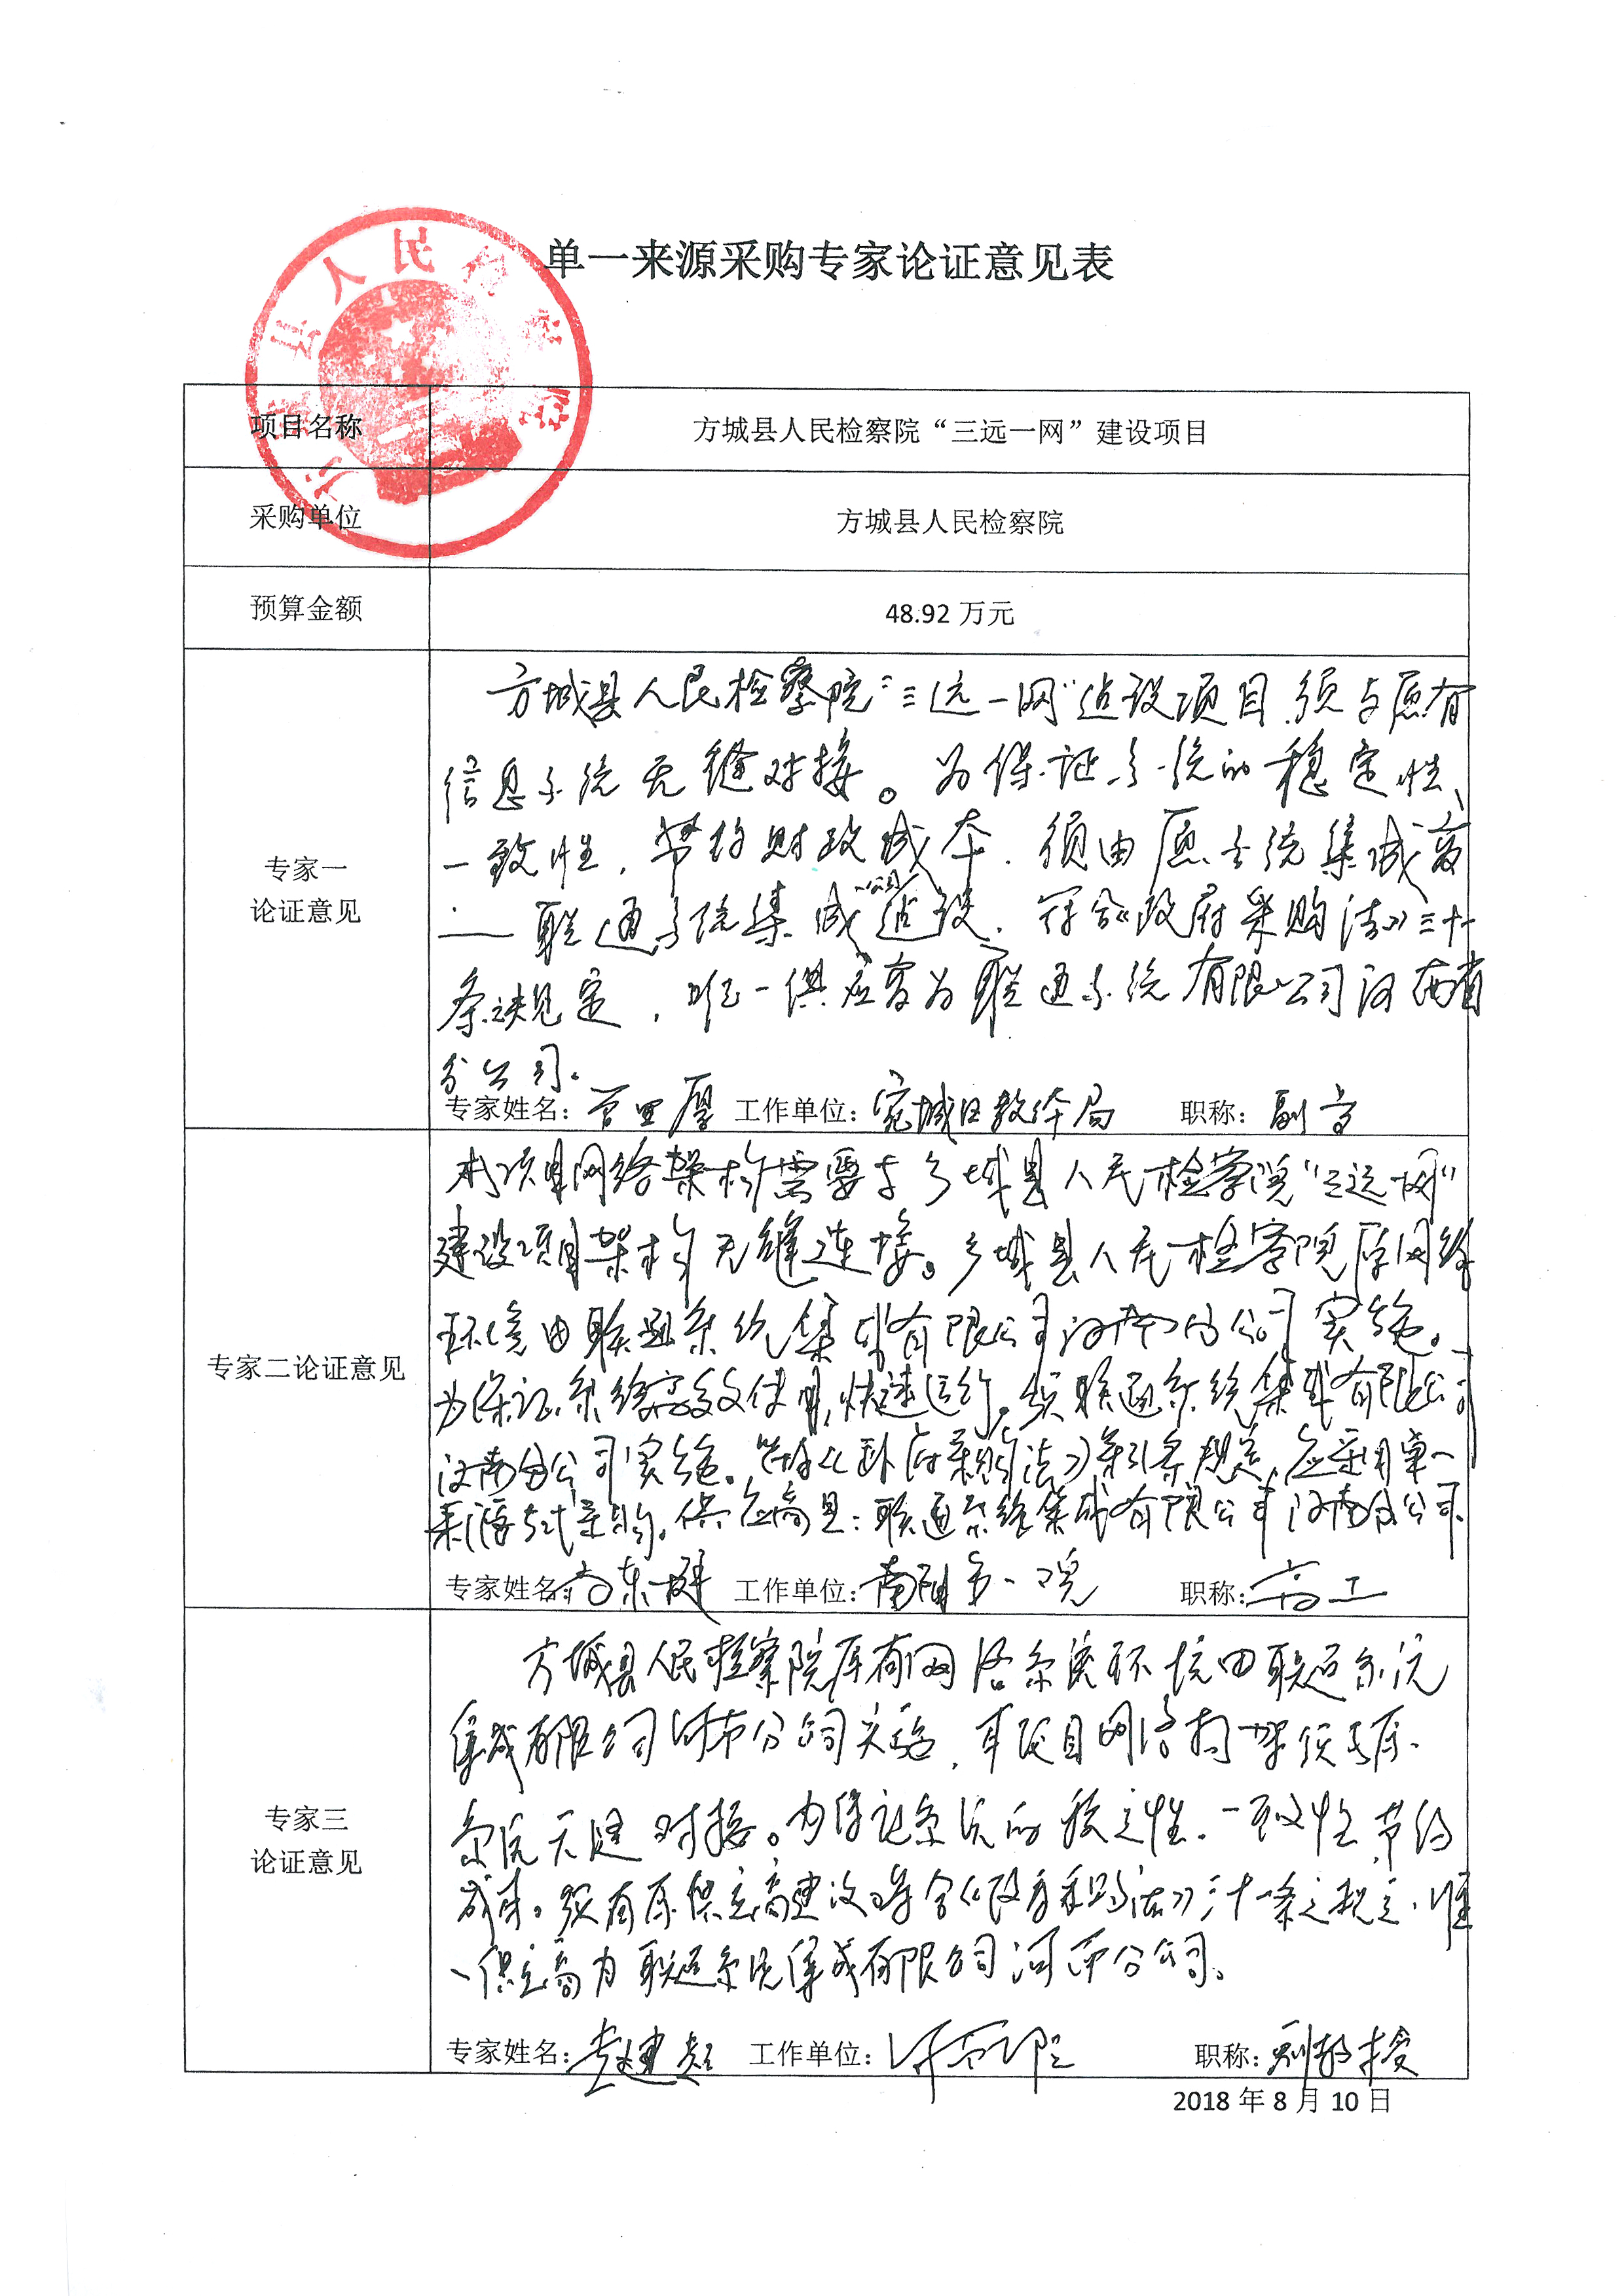 单一来源采购专家论证意见表
项目名称
方城县人民检察院“三远一网”建设项目
采购单位
方城县人民检察院
预算金额
48.92 万元
专家一
论证意见
方城县人民检察院“三远一网”建设项目,须与原有
信息系统无缝对接。为保证系统的稳定性、
一致性,节约财政成本,须由原系统集成商
——联通系统集成公司建设,符合《政府采购法》三十一
条之规定,唯一供应商为联通系统有限公司河南省
分公司。
专家姓名: 工作单位:宛城区教体局 职称:副高
专家二论证意见
本项目网络架构需要与方城县人民检察院“三远一网”
建设项目架构无缝连接。方城县人民检察院原网络
环境由联通系统集成有限公司河南分公司实施。
为保证系统高效使用,快速运行,须联通系统集成有限公司
河南分公司实施。符合《政府采购法》第31条规定,应采用单一
来源方式采购。供应商是:联通系统集成有限公司河南分公司。
专家姓名: 工作单位:南阳市一院 职称:高工
专家三
论证意见
方城县人民检察院原有网络系统环境由联通系统
集成有限公司河南分公司实施,本项目网络构架须与原
系统无缝对接。为保证系统的稳定性、一致性,节约
成本。须有原供应商建设,符合《政府采购法》三十一条之规定,唯
一供应商为联通系统集成有限公司河南分公司。
专家姓名:赵建超 工作单位: 职称:副教授
2018 年 8 月 10 日
县人民